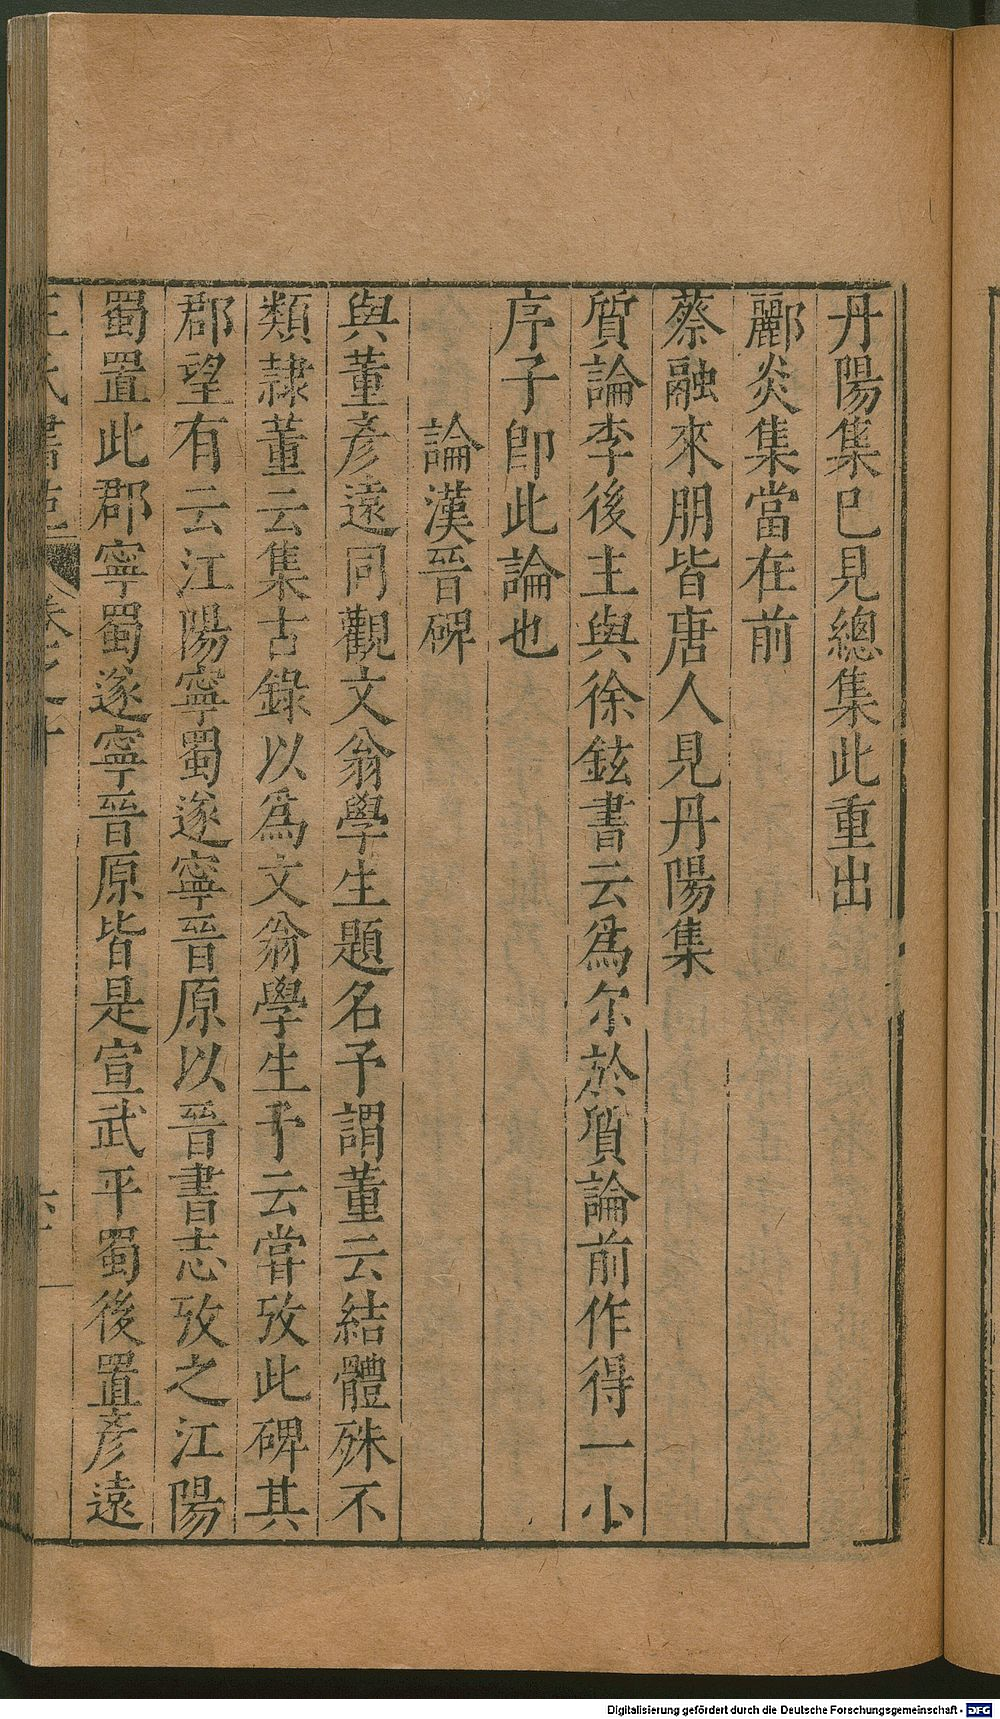 丹陽集已見總集此重出
酈炎集當在前
蔡融來朋皆唐人見丹陽集
質論李後主與徐鉉書云爲尔於質論前作得一小
序子卽此論也
論漢晉碑
與董彥遠同觀文翁學生題名予謂董云結體殊不
類隷董云集古錄以爲文翁學生予云嘗攷此碑其
郡望有云江陽寧蜀遂寧晉原以晉書志攷之江陽
蜀置此郡寧蜀遂寧晉原皆是宣武平蜀後置彥遠
王氏書苑 卷之十
Digitalisierung gefördert durch die Deutsche Forschungsgemeinschaft - DFG